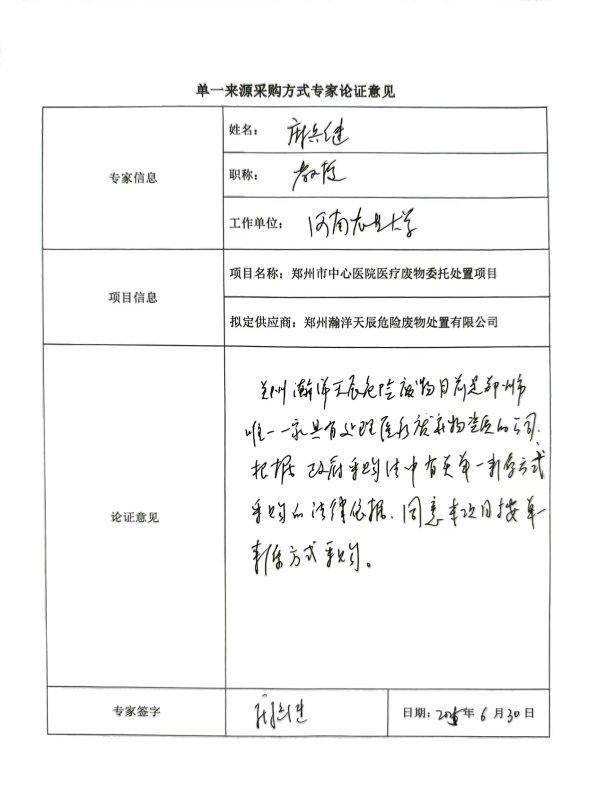 单一来源采购方式专家论证意见
专家信息
姓名：麻兵继
职称：教授
工作单位：河南农业大学
项目信息
项目名称：郑州市中心医院医疗废物委托处置项目
拟定供应商：郑州瀚洋天辰危险废物处置有限公司
论证意见
郑州瀚洋天辰危险废物目前是郑州市
唯一一家具有处理医疗废弃物资质的公司，
根据政府采购法中有关单一来源方式
采购的法律依据，同意本项目按单一
来源方式采购。
专家签字
麻兵继
日期：2025年6月30日